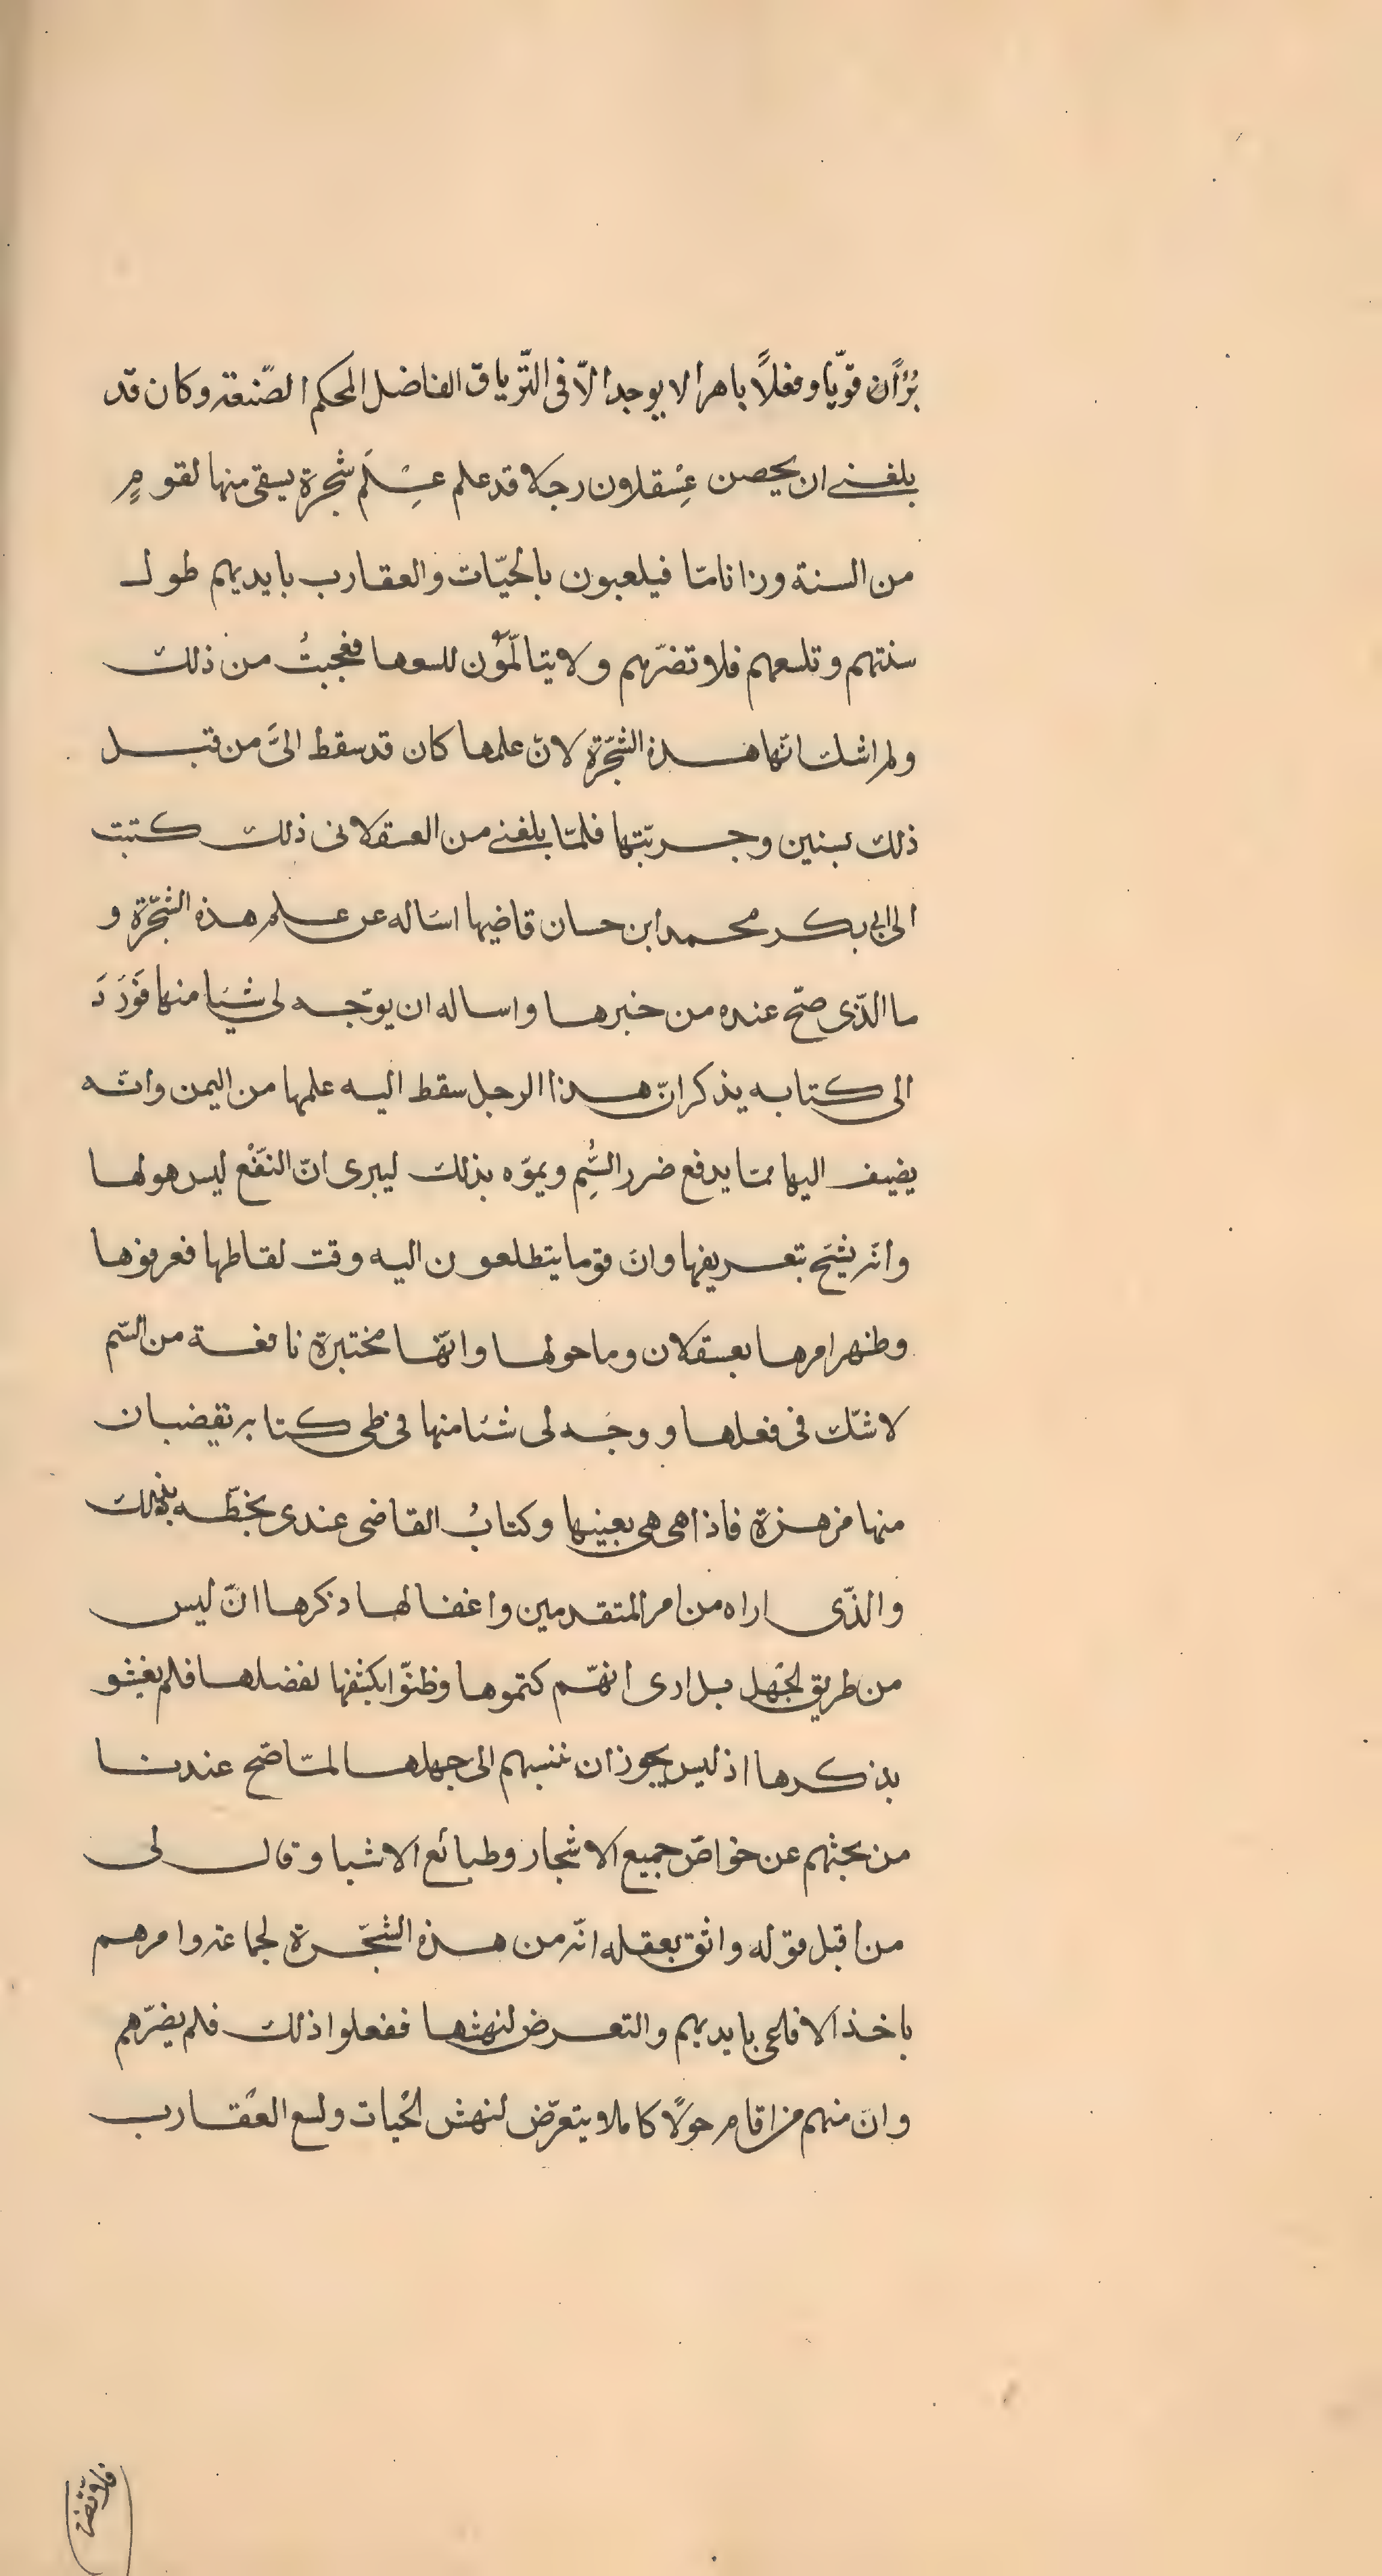 بُرْأً ن قوّيا وفعلاً باهرا لا يوجد الّا فى التّرياق الفاضل المحكم الصّنعة وكان قد
بلغنى ان بحصن عسقلون رجلا قد علم عِلمَ شجرة يسقى منها لقومٍ
من السنة وزنا نامّا فيلعبون بالحيّات والعقارب بايديهم طول
سنتهم وتلسعهم فلا تضرّهم ولا يتالّمؤن للسعها فعجبتُ من ذلك
ولم اشك انّها هذه الشّجرة لانّ علمها كان قد سقط الىَّ من قبل
ذلك بسنين وجربّتها فلمّا بلغنى من العسقلانى ذلك كتبت
الى ابى بكر محمد ابن حسان قاضيها اساله عن علم هذه الشّجرة و
ما الذّى صحّ عنده من خبرها واساله ان يوّجه لى شيا منها فَوَرَدَ
الى كتابه يذكر انّ هذا الرجل سقط اليه علمها من اليمن وانّه
يضيف اليها ممّا يدفع ضرر السُّمِ ويموّه بذلك ليرى انّ النّفْع ليس هو لها
وانّه يشحّ بتعريفها وانّ قوما يتطلعون اليه وقت لقاطها فعرفوها
وظهر امرها بعسقلان وما حولها وانّها مختبرة نافعة من السّم
لا شّك فى فعلها و وجَه لى شئا منها فى طى كتابه بقضبان
منها مزهزة فاذا هى هى بعينها وكتابُ القاضى عندى بخطّه بذلك
والذّى اراه من امر المتقدمين واغفالها ذكرها انّ ليس
من طريق الجهْل بل ارى انهّم كتموها وظنوّا بكشفها لفضلها فلم يغشو
بذكرها اذ ليس يجوز ان ننسبهم الى جهلها لمّا صّح عندنا
من بحثهم عن خواصّ جميع الاشجار وطبائع الاشيا وقال لى
من اقبل قوله واثق بعقله انّه من هذه الشّجرة لجماعة وامرهم
باخذ الافاعى بايديهم والتعرض لنهشها ففعلوا ذلك فلم يضرّهم
وانّ منهم من اقام حولًا كاملا يتعرّض لنهش الحْيات ولسع العْقارب
فلا تضره